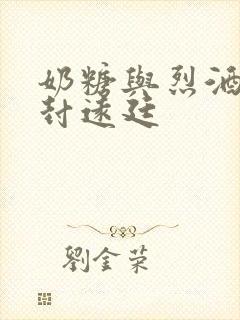 奶糖與烈酒
封遠廷
劉金荣